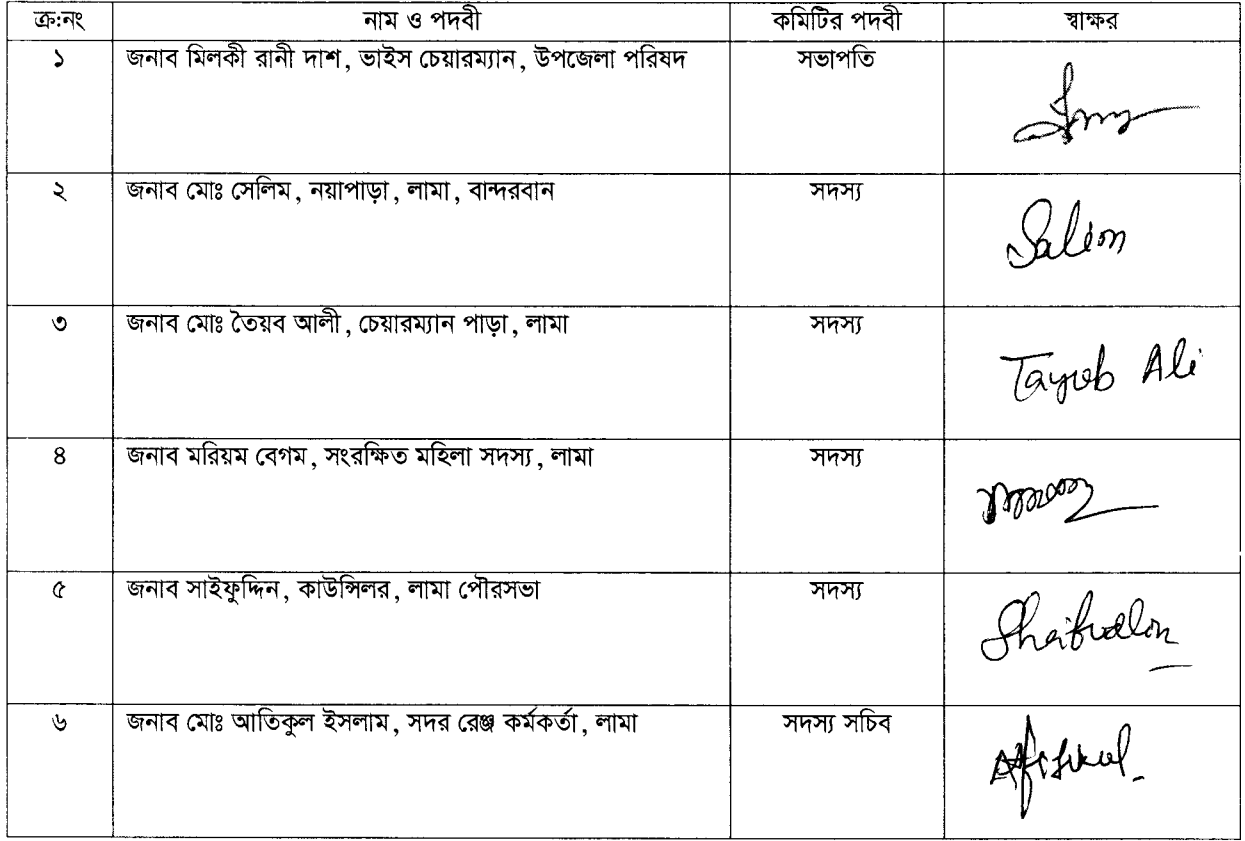 ক্র:নং নাম ও পদবী কমিটির পদবী স্বাক্ষর
১ জনাব মিলকী রানী দাশ, ভাইস চেয়ারম্যান, উপজেলা পরিষদ সভাপতি
২ জনাব মোঃ সেলিম, নয়াপাড়া, লামা, বান্দরবান সদস্য Salim
৩ জনাব মোঃ তৈয়ব আলী, চেয়ারম্যান পাড়া, লামা সদস্য Tayub Ali
৪ জনাব মরিয়ম বেগম, সংরক্ষিত মহিলা সদস্য, লামা সদস্য
৫ জনাব সাইফুদ্দিন, কাউন্সিলর, লামা পৌরসভা সদস্য
৬ জনাব মোঃ আতিকুল ইসলাম, সদর রেঞ্জ কর্মকর্তা, লামা সদস্য সচিব